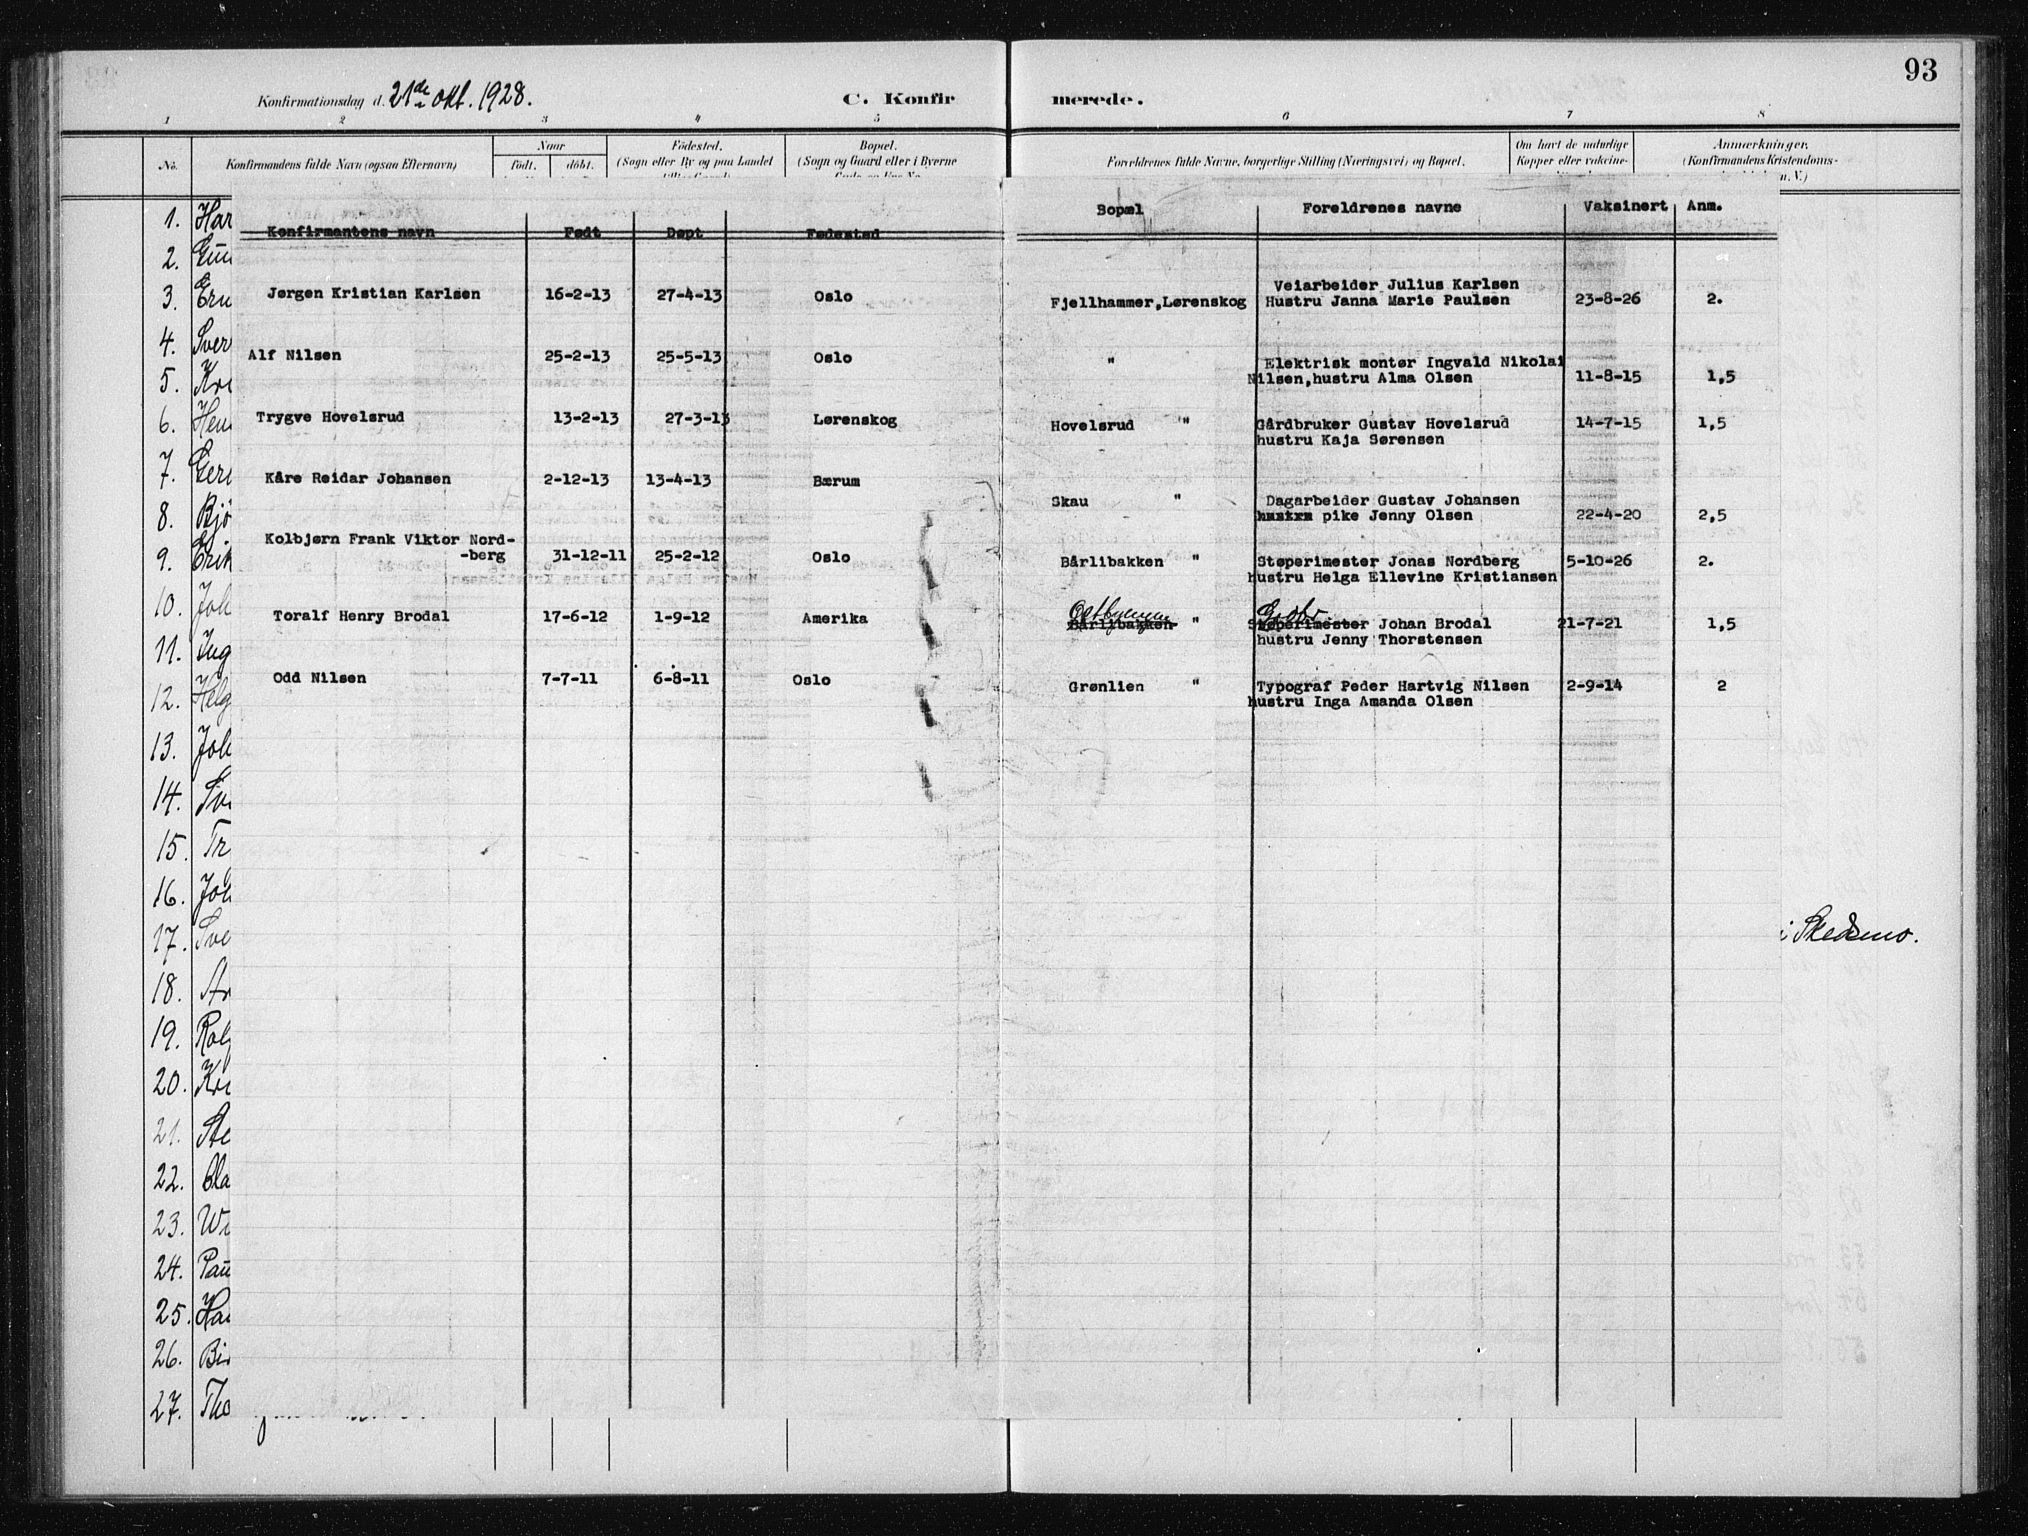 93
Konfirmationsdag d. 21de okt. 1928. C. Konfirmerede.
1 2 3 4 5 6 7 8
No. Konfirmandens fulde Navn (ogsaa Efternavn) Naar Fødested. Bopæl. Forældrenes fulde Navne, borgerlige Stilling (Næringsvei) og Bopæl. Om havt de naturlige Anmærkninger,
født. døbt. (Sogn eller By og paa Landet (Sogn og Gaard eller i Byerne Kopper eller vakcine- (Konfirmandens Kristendoms-
n. V.)
Konfirmantens navn Født Døpt Fødested Bopæl Foreldrenes navne Vaksinert Anm.
Jørgen Kristian Karlsen 16-2-13 27-4-13 Oslo Fjellhammer,Lørenskog Veiarbeider Julius Karlsen
Hustru Janna Marie Paulsen 23-8-26 2.
Alf Nilsen 25-2-13 25-5-13 Oslo " Elektrisk montør Ingvald Nikolai
Nilsen,hustru Alma Olsen 11-8-15 1,5
Trygve Hovelsrud 13-2-13 27-3-13 Lørenskog Hovelsrud " Gårdbruker Gustav Hovelsrud 14-7-15 1,5
hustru Kaja Sørensen
Kåre Reidar Johansen 2-12-13 13-4-13 Bærum Skau " Dagarbeider Gustav Johansen
hustru pike Jenny Olsen 22-4-20 2,5
Kolbjørn Frank Viktor Nord-
-berg 31-12-11 25-2-12 Oslo Bårlibakken " Støperimester Jonas Nordberg 5-10-26 2.
hustru Helga Ellevine Kristiansen
Toralf Henry Brodal 17-6-12 1-9-12 Amerika Bårlibakken " Støperimester Johan Brodal 21-7-21 1,5
hustru Jenny Thorstensen
Odd Nilsen 7-7-11 6-8-11 Oslo Grønlien " Typograf Peder Hartvig Nilsen 2-9-14 2
hustru Inga Amanda Olsen
1. Har
2. Gun
3. Eru
4. Sver
5. Kri
6. Hen
7. Ger
8. Bjø
9. Erik
10. Joh
11. Ing
12. Helg
13. Joh
14. Sve
15. Tr
16. Joh
17. Sve i Skedsmo.
18. Ar
19. Rol
20. Kri
21. Ste
22. Ola
23. Wi
24. Pau
25. Ha
26. Bi
27. Tho